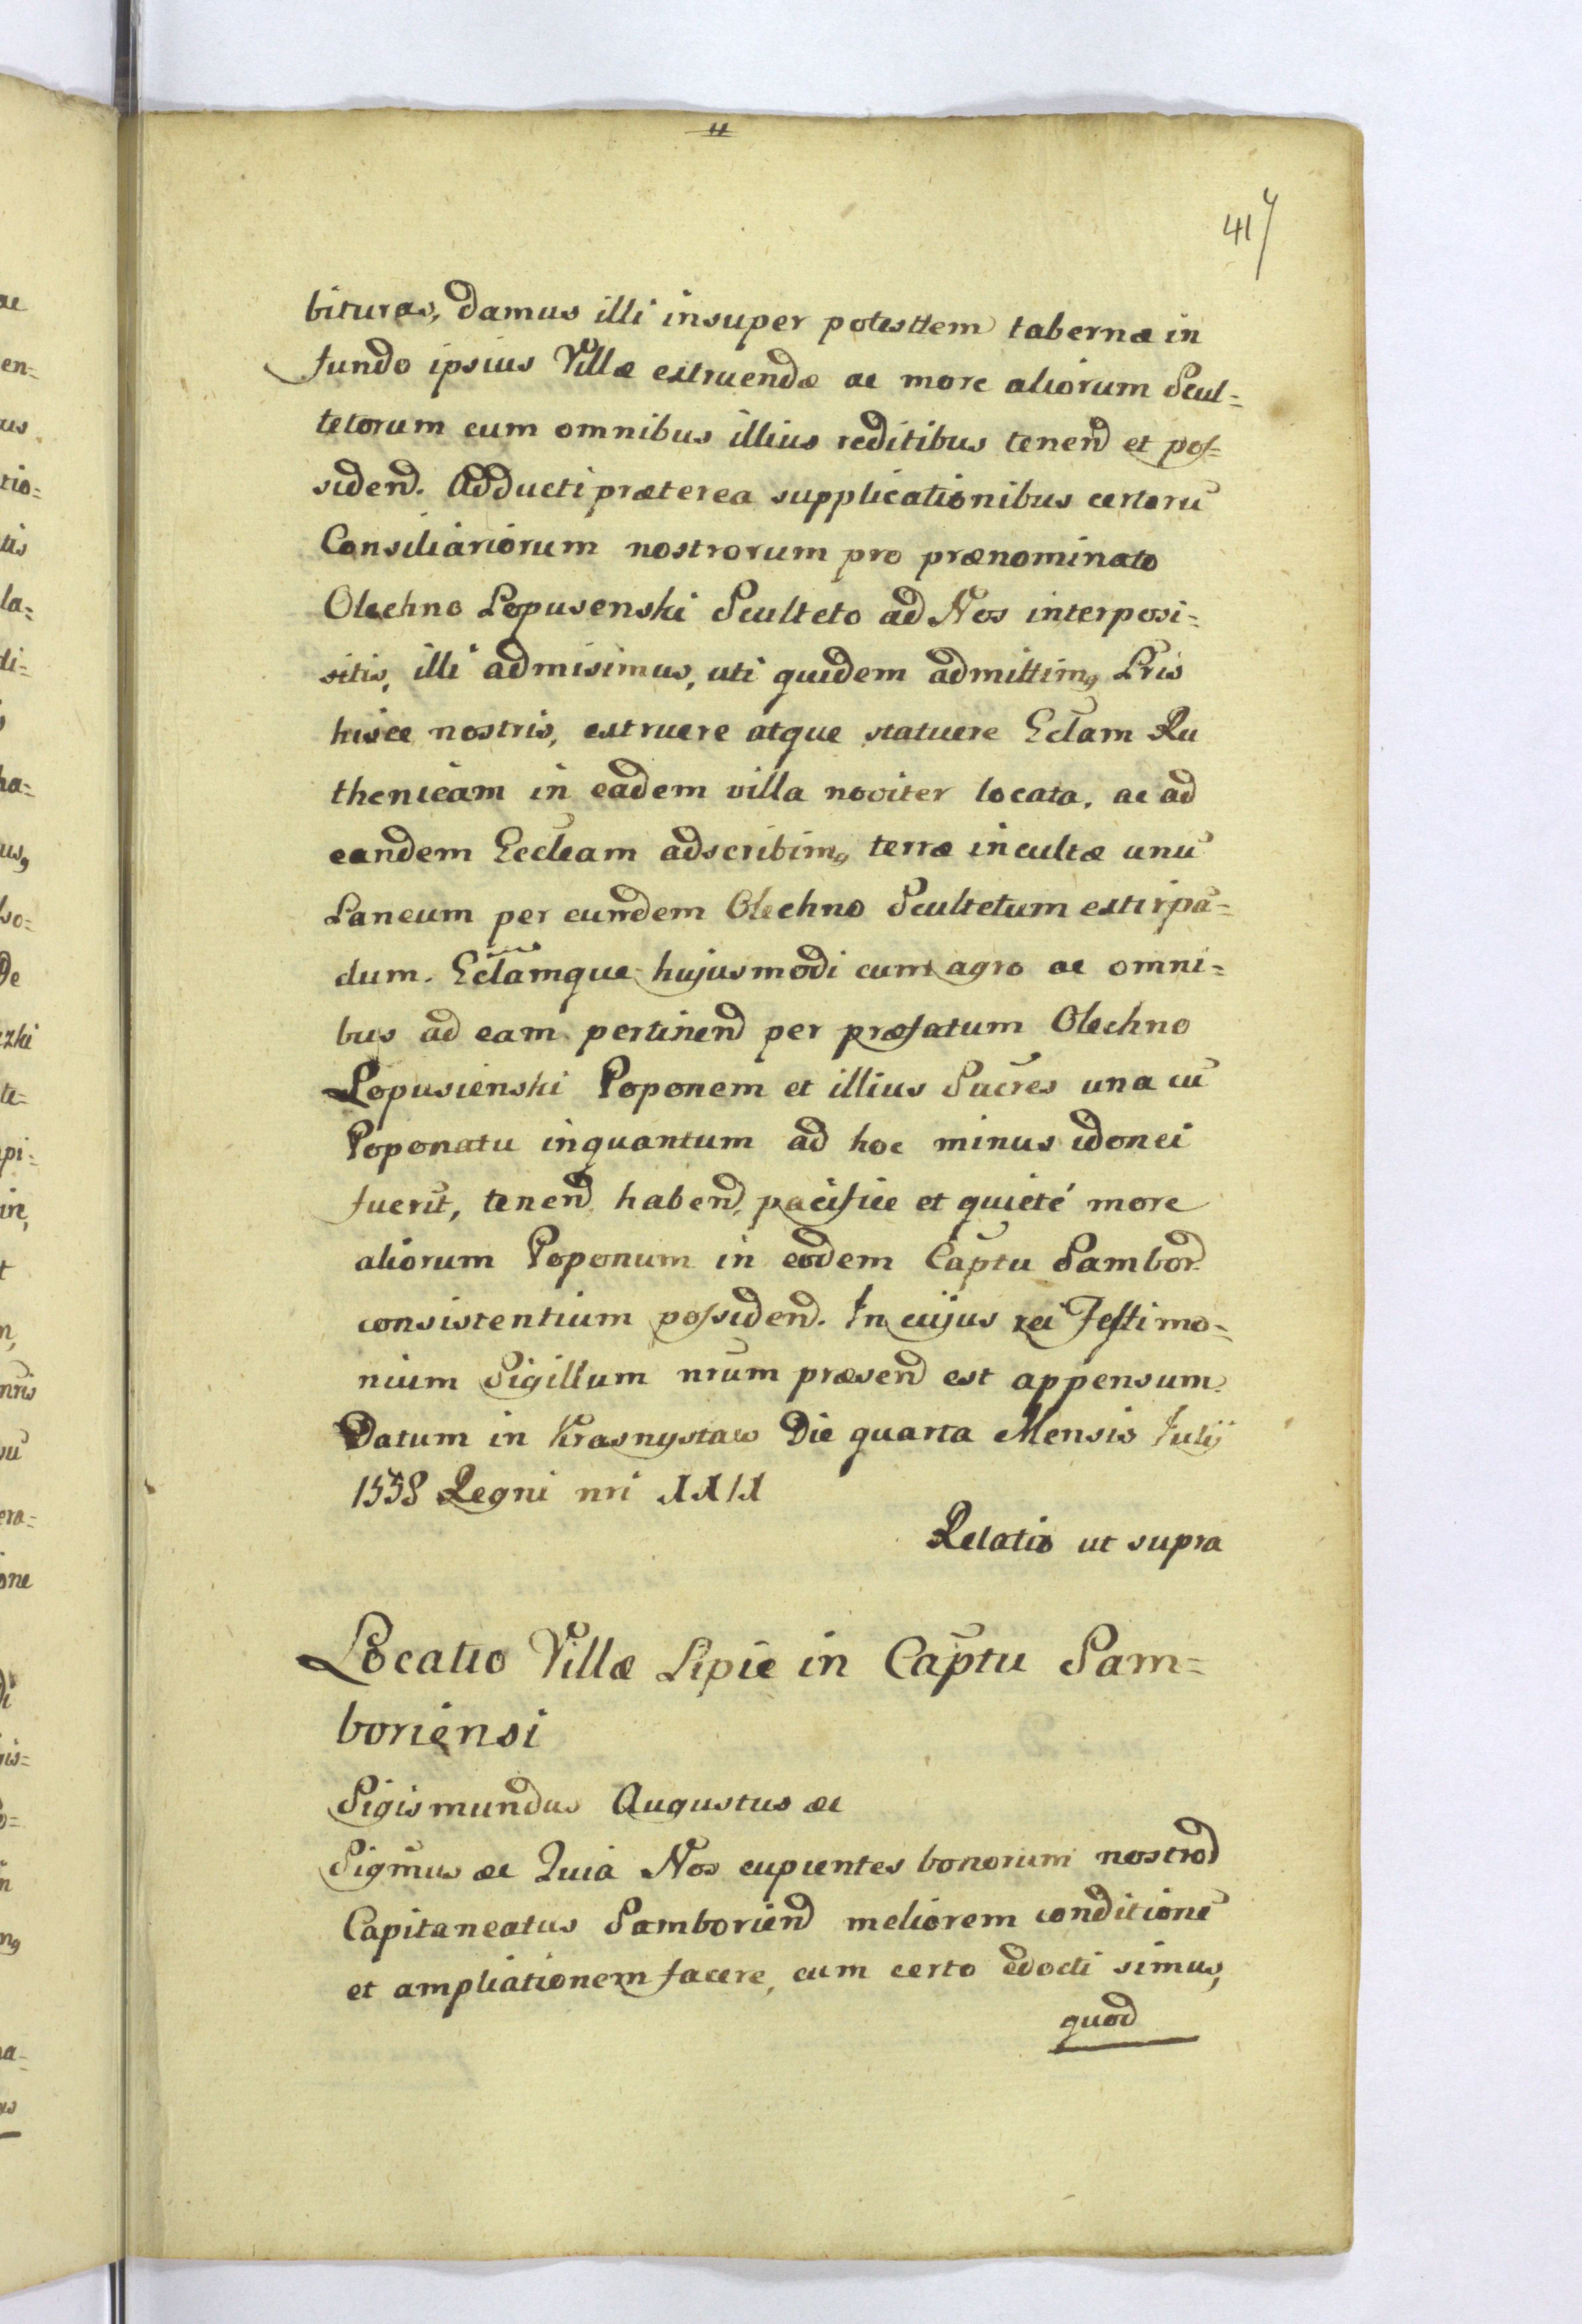 417
bituras, damus illi insuper potesttem tabernæ in
fundo ipsius Villæ extruendæ ac more aliorum Scul=
tetorum cum omnibus illius reditibus tenend et pos=
sidend. Adducti præterea supplicationibus certorū
Consiliariorum nostrorum pro prænominato
Olechno Lopusenski Sculteto ad Nos interposi=
sitis, illi admisimus, uti quidem admittimꝰ Lr̃is
hisce nostris, extruere atque statuere Ecl̃am Ru
thenicam in eadem villa noviter locata, ac ad
eandem Eccl̃eam adscribimꝰ terræ incultæ unū
Laneum per eundem Olechno Scultetum extirpā=
dum. Ecl̃amque hujusmodi cum agro ac omni=
bus ad eam pertinend per præfatum Olechno
Lopusienski Poponem et illius Sucr̃es una cū
Poponatu inquantum ad hoc minus idonei
fuerīt, tenend habend, pacifice et quieté more
aliorum Poponum in eodem Cap̃tu Sambor
consistentium possidend. In cujus rei Testimo=
nium Sigillum nr̃um præsend est appensum.
Datum in Krasnystaw Die quarta Mensis Julij
1558 Regni nr̃i XXIX
Relatio ut supra
Locatio Villæ Lipie in Cap̃tu Sam=
boriensi
Sigismundus Augustus &c
Sigm̃us &c Quia Nos cupientes bonorum nostrod
Capitaneatus Samboriend meliorem conditionē
et ampliationem facere, cum certo edocti simus,
quod